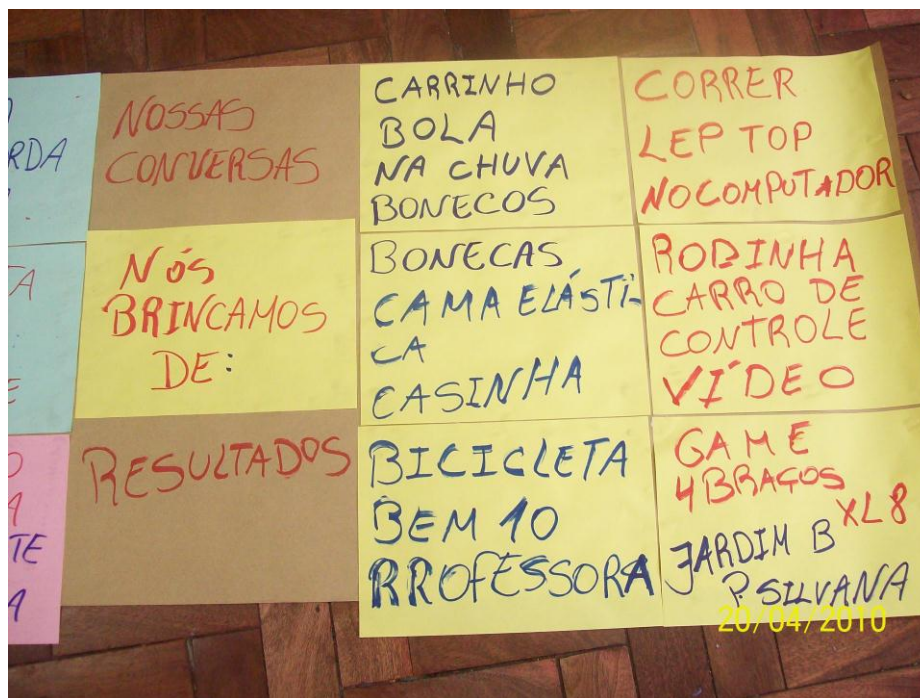 RDA
A
E
O
A
TE
A
NOSSAS
CONVERSAS
NÓS
BRINCAMOS
DE:
RESULTADOS
CARRINHO
BOLA
NA CHUVA
BONECOS
BONECAS
CAMA ELÁSTI-
CA
CASINHA
BICICLETA
BEM 10
RROFESSORA
CORRER
LEP TOP
NO COMPUTADOR
RODINHA
CARRO DE
CONTROLE
VÍDEO
GAME
4 BRAÇOS
XL8
JARDIM B
P. SILVANA
20/04/2010